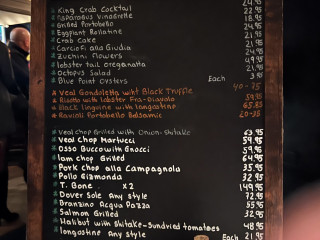 King Crab Cocktail 24.95
Asparagus Vinagrette 22.95
Grilled Portobello 18.95
Eggplant Rollatine 24.95
Crab Cake 21.95
Carciofi alla Giudia 21.95
Zuchini flowers 24.95
lobster tail oreganatta 49.95
Octopus Salad 21.95
Blue Point Oysters Each 3.95
Veal Gondoletta wiht Black Truffle 40-75
Risotto with lobster Fra-Diavolo 59.95
Black linguine with longostino 65.85
Ravioli Portobello Balsamic 20-35
Veal Chop Grilled with Onion-Shitake 63.95
Veal Chop Martucci 59.95
Osso Buccowith Gnocci 59.95
lam chop Grilled 64.95
Pork chop alla Campagnola 35.95
Pollo Gizmonda 32.95
T. Bone X2 149.95
Dover Sole Any style 72.95
Branzino Acqua Pazza 55.95
Salmon Grilled 32.95
Halibut with Shitake-Sundried tomatoes 48.95
longostino Any style Each 21.95